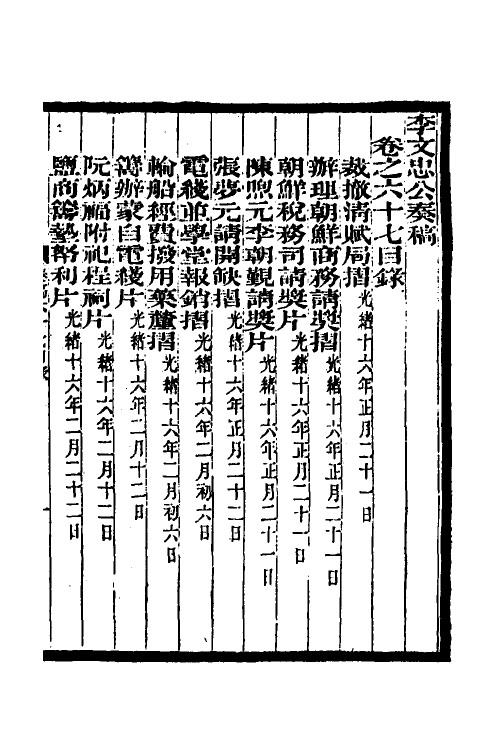 李文忠公奏稿
卷之六十七目錄
裁撤清賦局摺光緒十六年正月二十一日
辦理朝鮮商務請獎摺光緒十六年正月二十一日
朝鮮稅務司請獎片光緒十六年正月二十一日
陳煦元李朝覲請獎片光緒十六年正月二十一日
張夢元請開缺摺光緒十六年正月二十二日
電綫並學堂報銷摺光緒十六年二月初六日
輪船經費撥用藥釐摺光緒十六年二月初六日
籌辦蒙自電綫片光緒十六年二月十二日
阮炳福附祀程祠片光緒十六年二月十二日
鹽商發帑利片光緒十六年二月二十二日